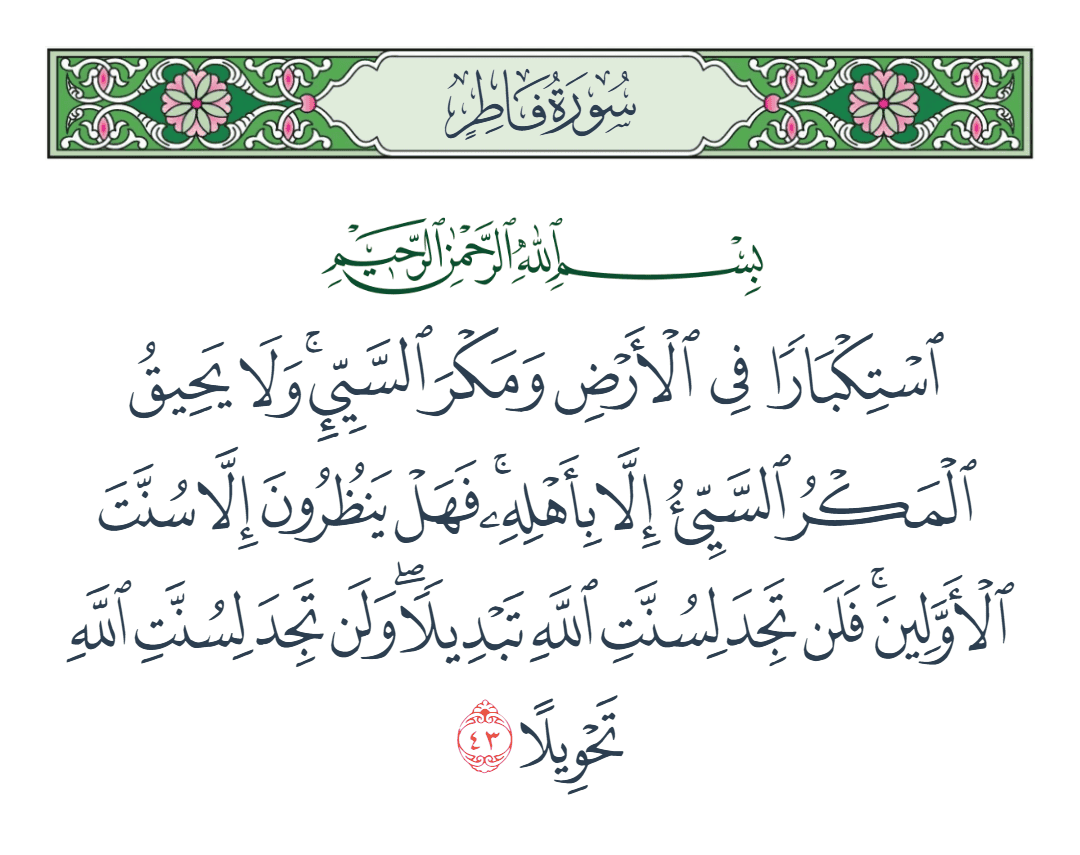 سُورَةُ فَاطِرٍ
بِسْمِ ٱللَّهِ ٱلرَّحْمَٰنِ ٱلرَّحِيمِ
ٱسْتِكْبَارًۭا فِى ٱلْأَرْضِ وَمَكْرَ ٱلسَّيِّئِ ۚ وَلَا يَحِيقُ
ٱلْمَكْرُ ٱلسَّيِّئُ إِلَّا بِأَهْلِهِۦ ۚ فَهَلْ يَنظُرُونَ إِلَّا سُنَّتَ
ٱلْأَوَّلِينَ ۚ فَلَن تَجِدَ لِسُنَّتِ ٱللَّهِ تَبْدِيلًۭا ۖ وَلَن تَجِدَ لِسُنَّتِ ٱللَّهِ
تَحْوِيلًا ٤٣